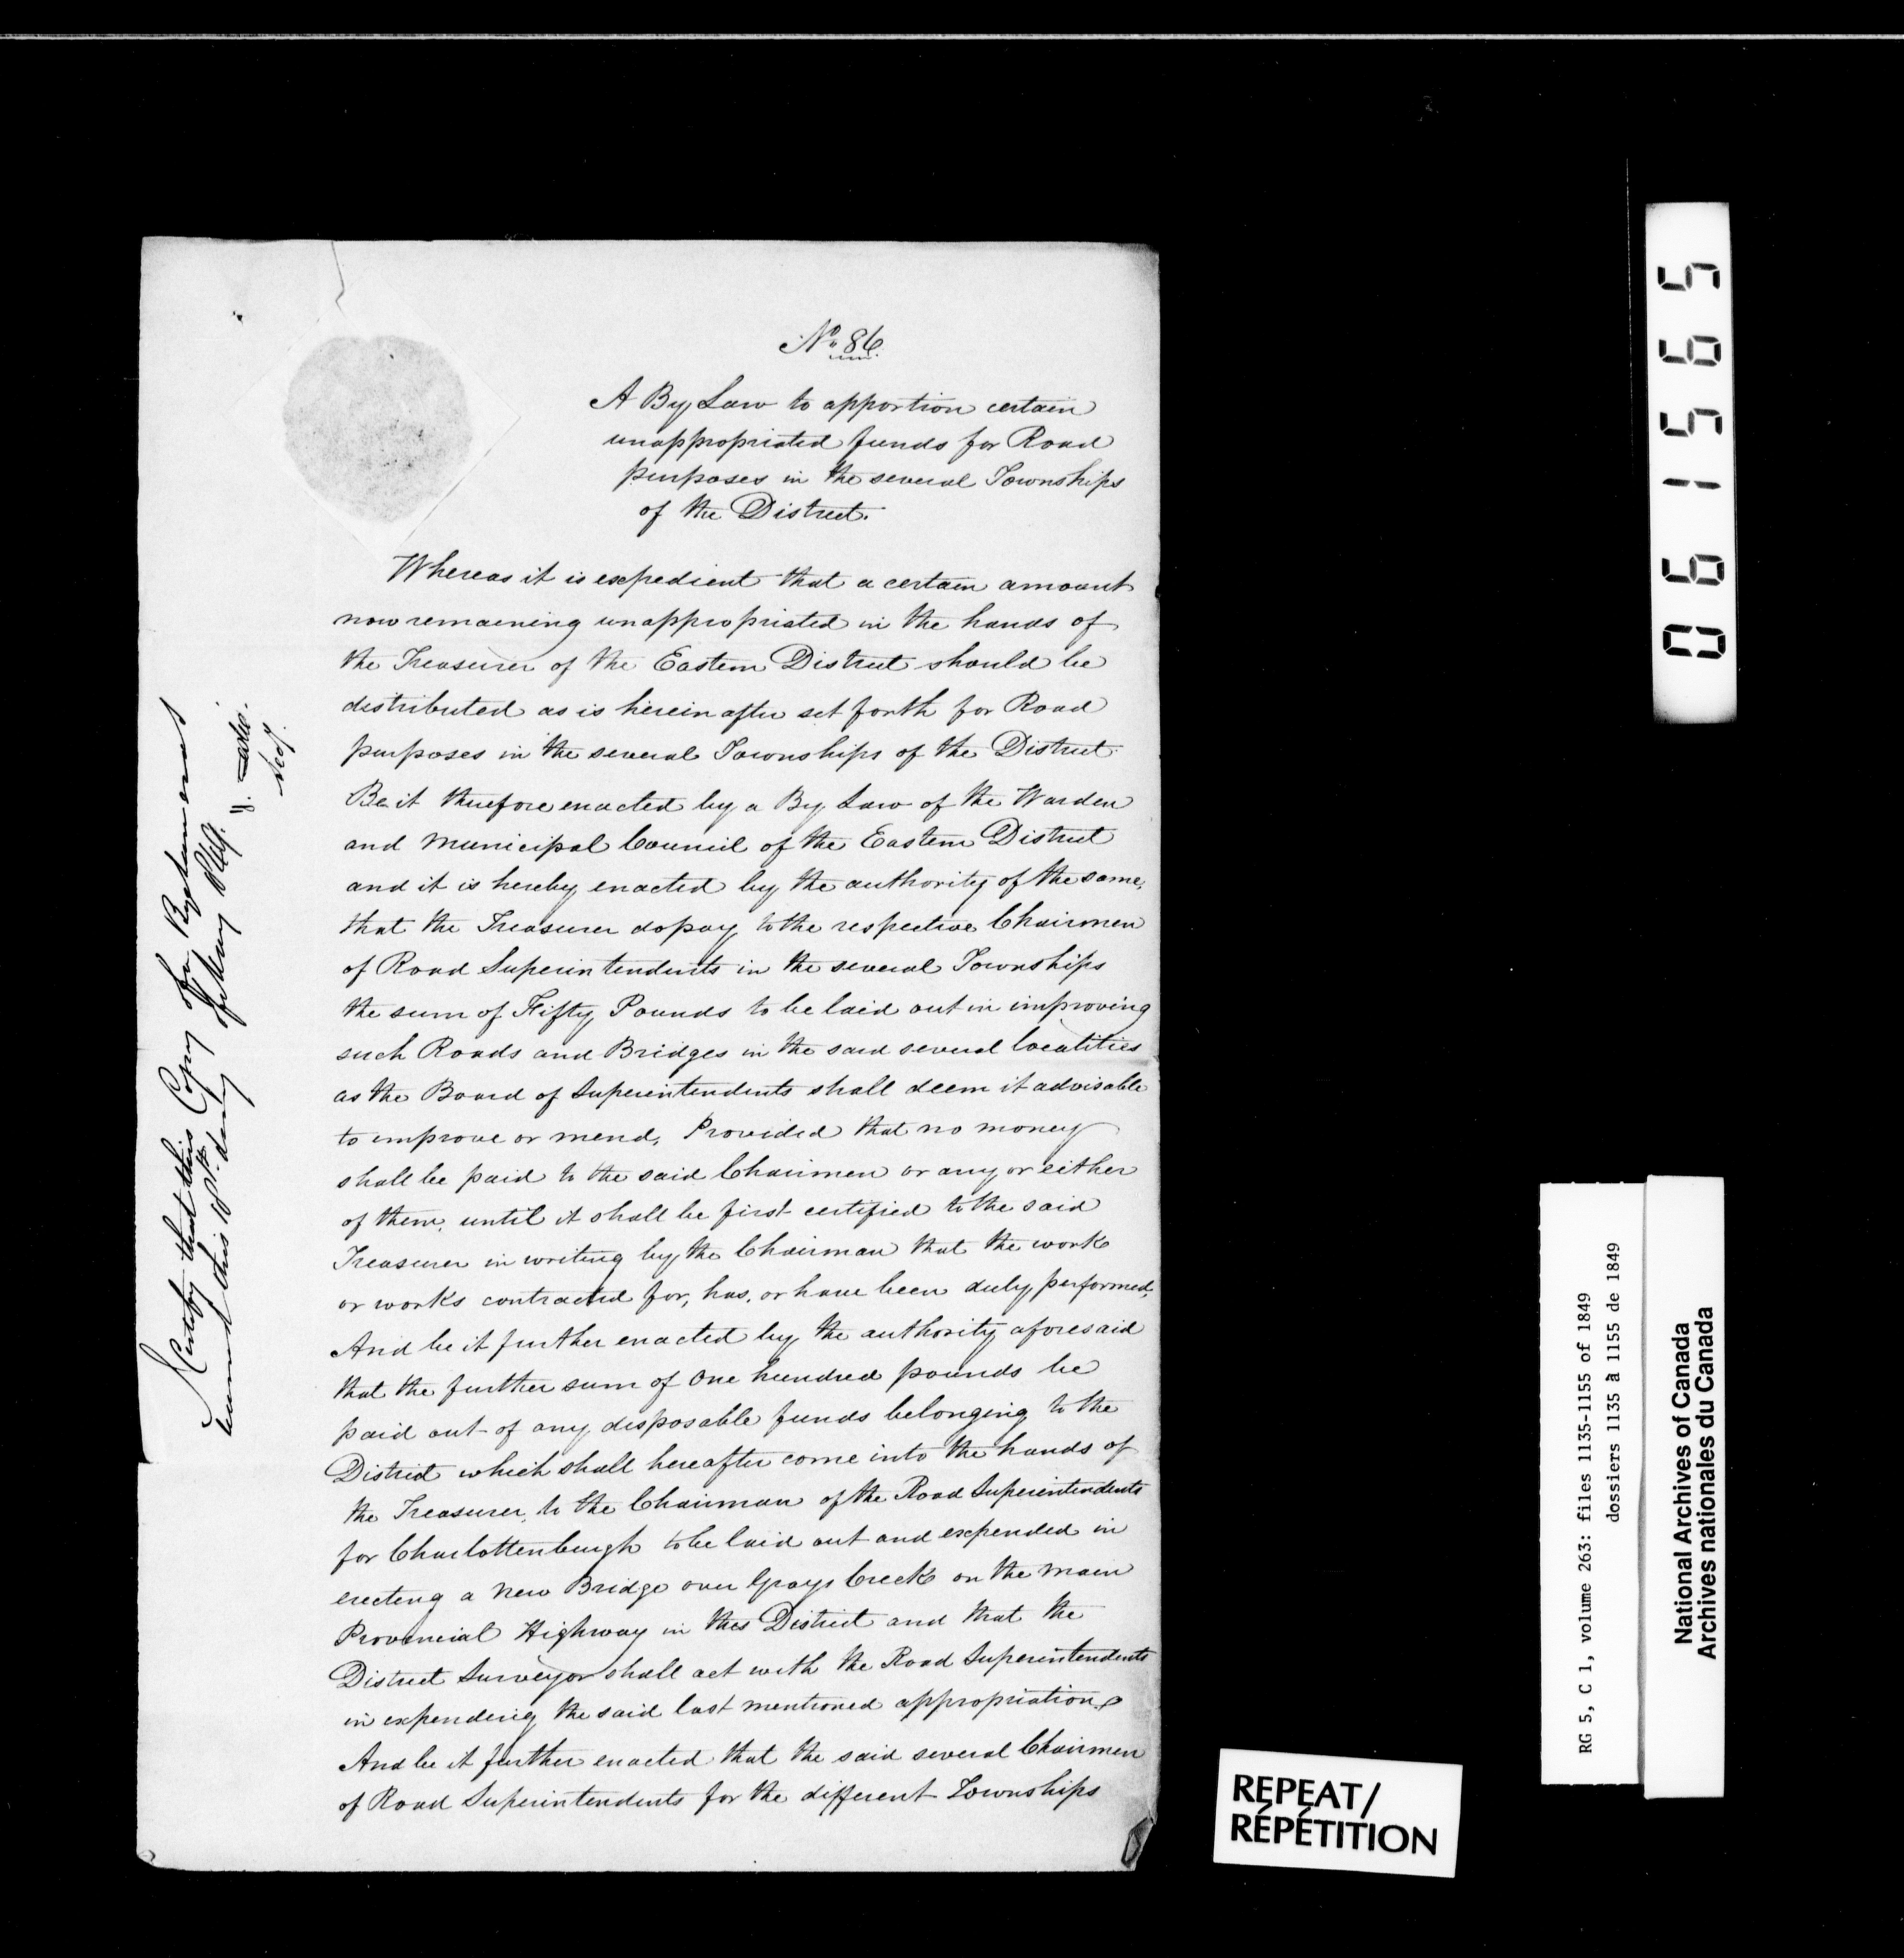 No. 86.
A By Law to apportion certain
unappropriated funds for Road
purposes in the several Townships
of the District.
Whereas it is expedient that a certain amount
now remaining unappropriated in the hands of
the Treasurer of the Eastern District should be
distributed as is herein after set forth for Road
purposes in the several Townships of the District
Be it therefore enacted by a By Law of the Warden
and Municipal Council of the Eastern District
and it is hereby enacted by the authority of the same,
that the Treasurer do pay to the respective Chairmen
of Road Superintendents in the several Townships
the sum of Fifty Pounds to be laid out in improving
such Roads and Bridges in the said several localities
as the Board of Superintendents shall deem it advisable
to improve or mend, Provided that no money
shall be paid to the said Chairmen or any or either
of them, until it shall be first certified to the said
Treasurer in writing by the Chairman that the work
or works contracted for, has, or have been duly performed,
And be it further enacted by the authority aforesaid
that the further sum of One hundred pounds be
paid out of any disposable funds belonging to the
District which shall hereafter come into the hands of
the Treasurer, to the Chairman of the Road Superintendents
for Charlottenburgh to be laid out and expended in
erecting a new Bridge over Grays Creek on the main
Provincial Highway in this District and that the
District Surveyor shall act with the Road Superintendents
in expending the said last mentioned appropriation
And be it further enacted that the said several Chairmen
of Road Superintendents for the different Townships
Certify that this Copy for
this 10th day
06 15 65
RG 5, C 1, volume 263: files 1135-1155 of 1849
dossiers 1135 à 1155 de 1849
National Archives of Canada
Archives nationales du Canada
REPEAT/
RÉPÉTITION